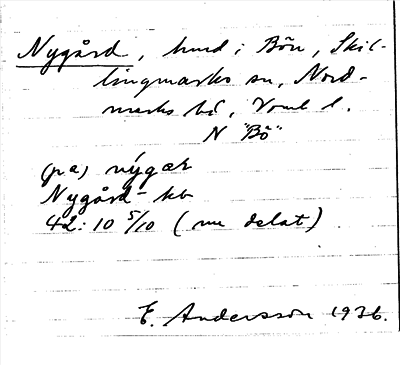 Nygård, hmd i Bön, Skil-
lingmarks sn, Nord-
marks hd, Vrml l.
N "Bö"
(pa) nýgæṛ
Nygård - kb
42:10 5/10 (nu delat)
E. Andersson 1936.